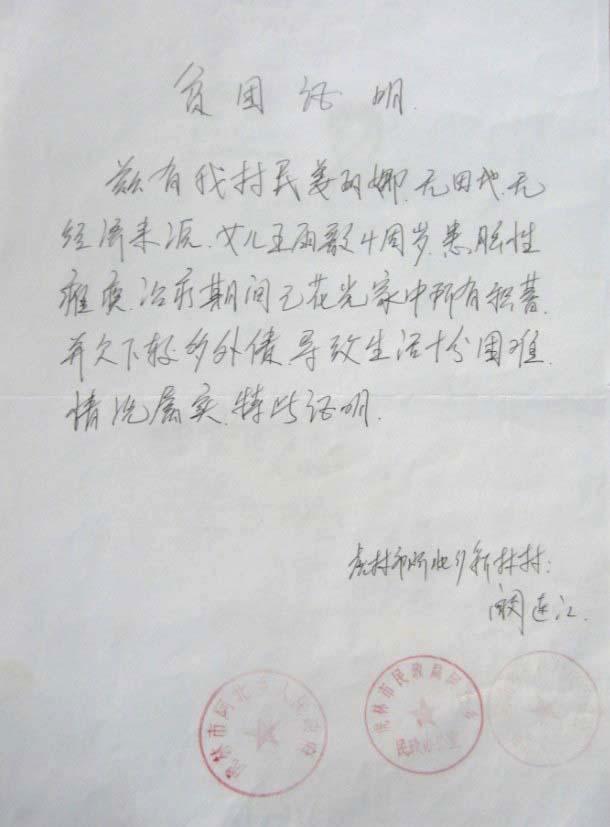 贫困证明.
兹有我村民姜丽娜.无田地.无
经济来源.女儿王雨歌4周岁.患脑性
瘫痪.治疗期间已花光家中所有积蓄.
并欠下较多外债.导致生活十分困难.
情况属实.特此证明.
虎林市阿北乡新林村:
阚连江.
虎林市阿北乡人民政府
虎林市民政局阿北乡
民政办公室